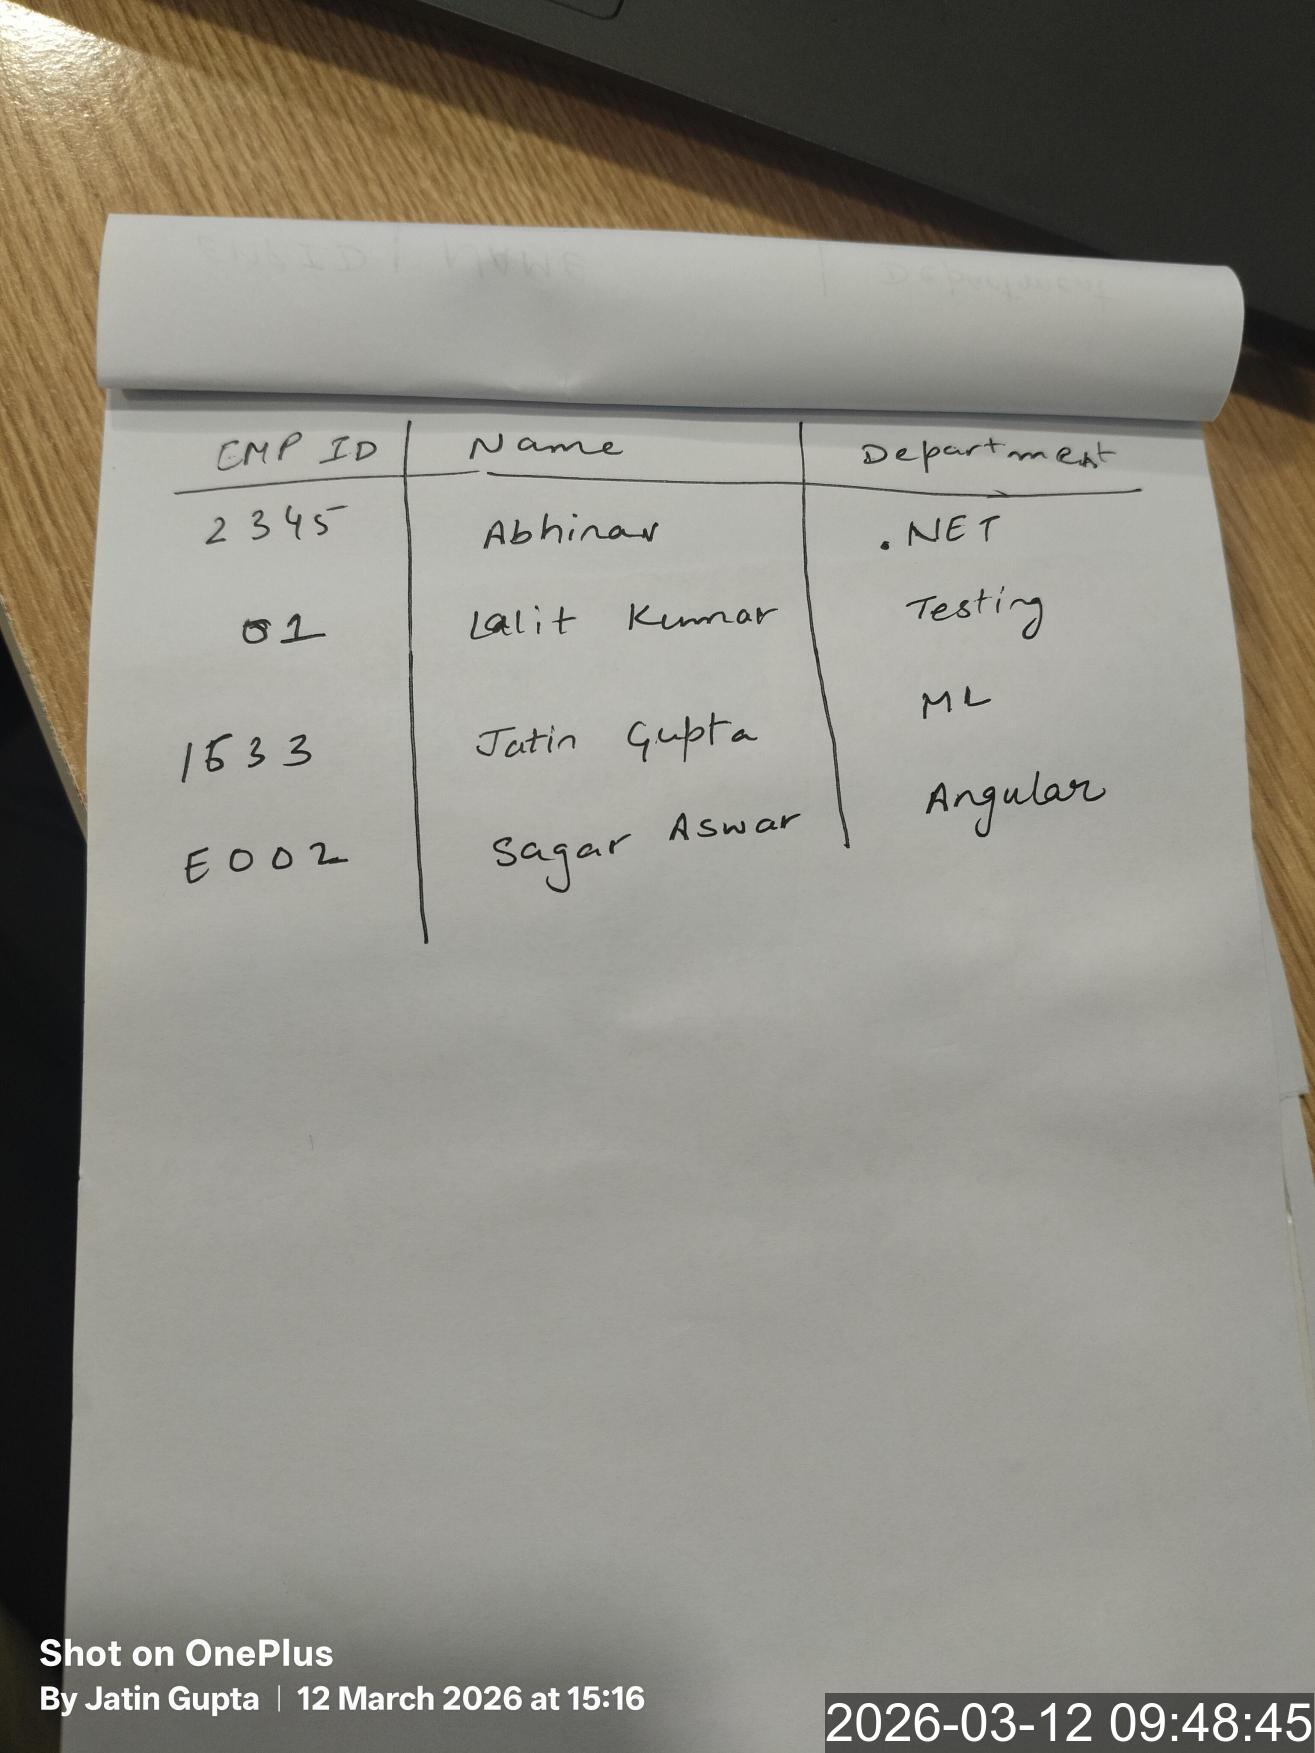 EMP ID Name Department
2345 Abhinav .NET
01 Lalit Kumar Testing
1533 Jatin Gupta ML
E002 Sagar Aswar Angular
Shot on OnePlus
By Jatin Gupta | 12 March 2026 at 15:16
2026-03-12 09:48:45